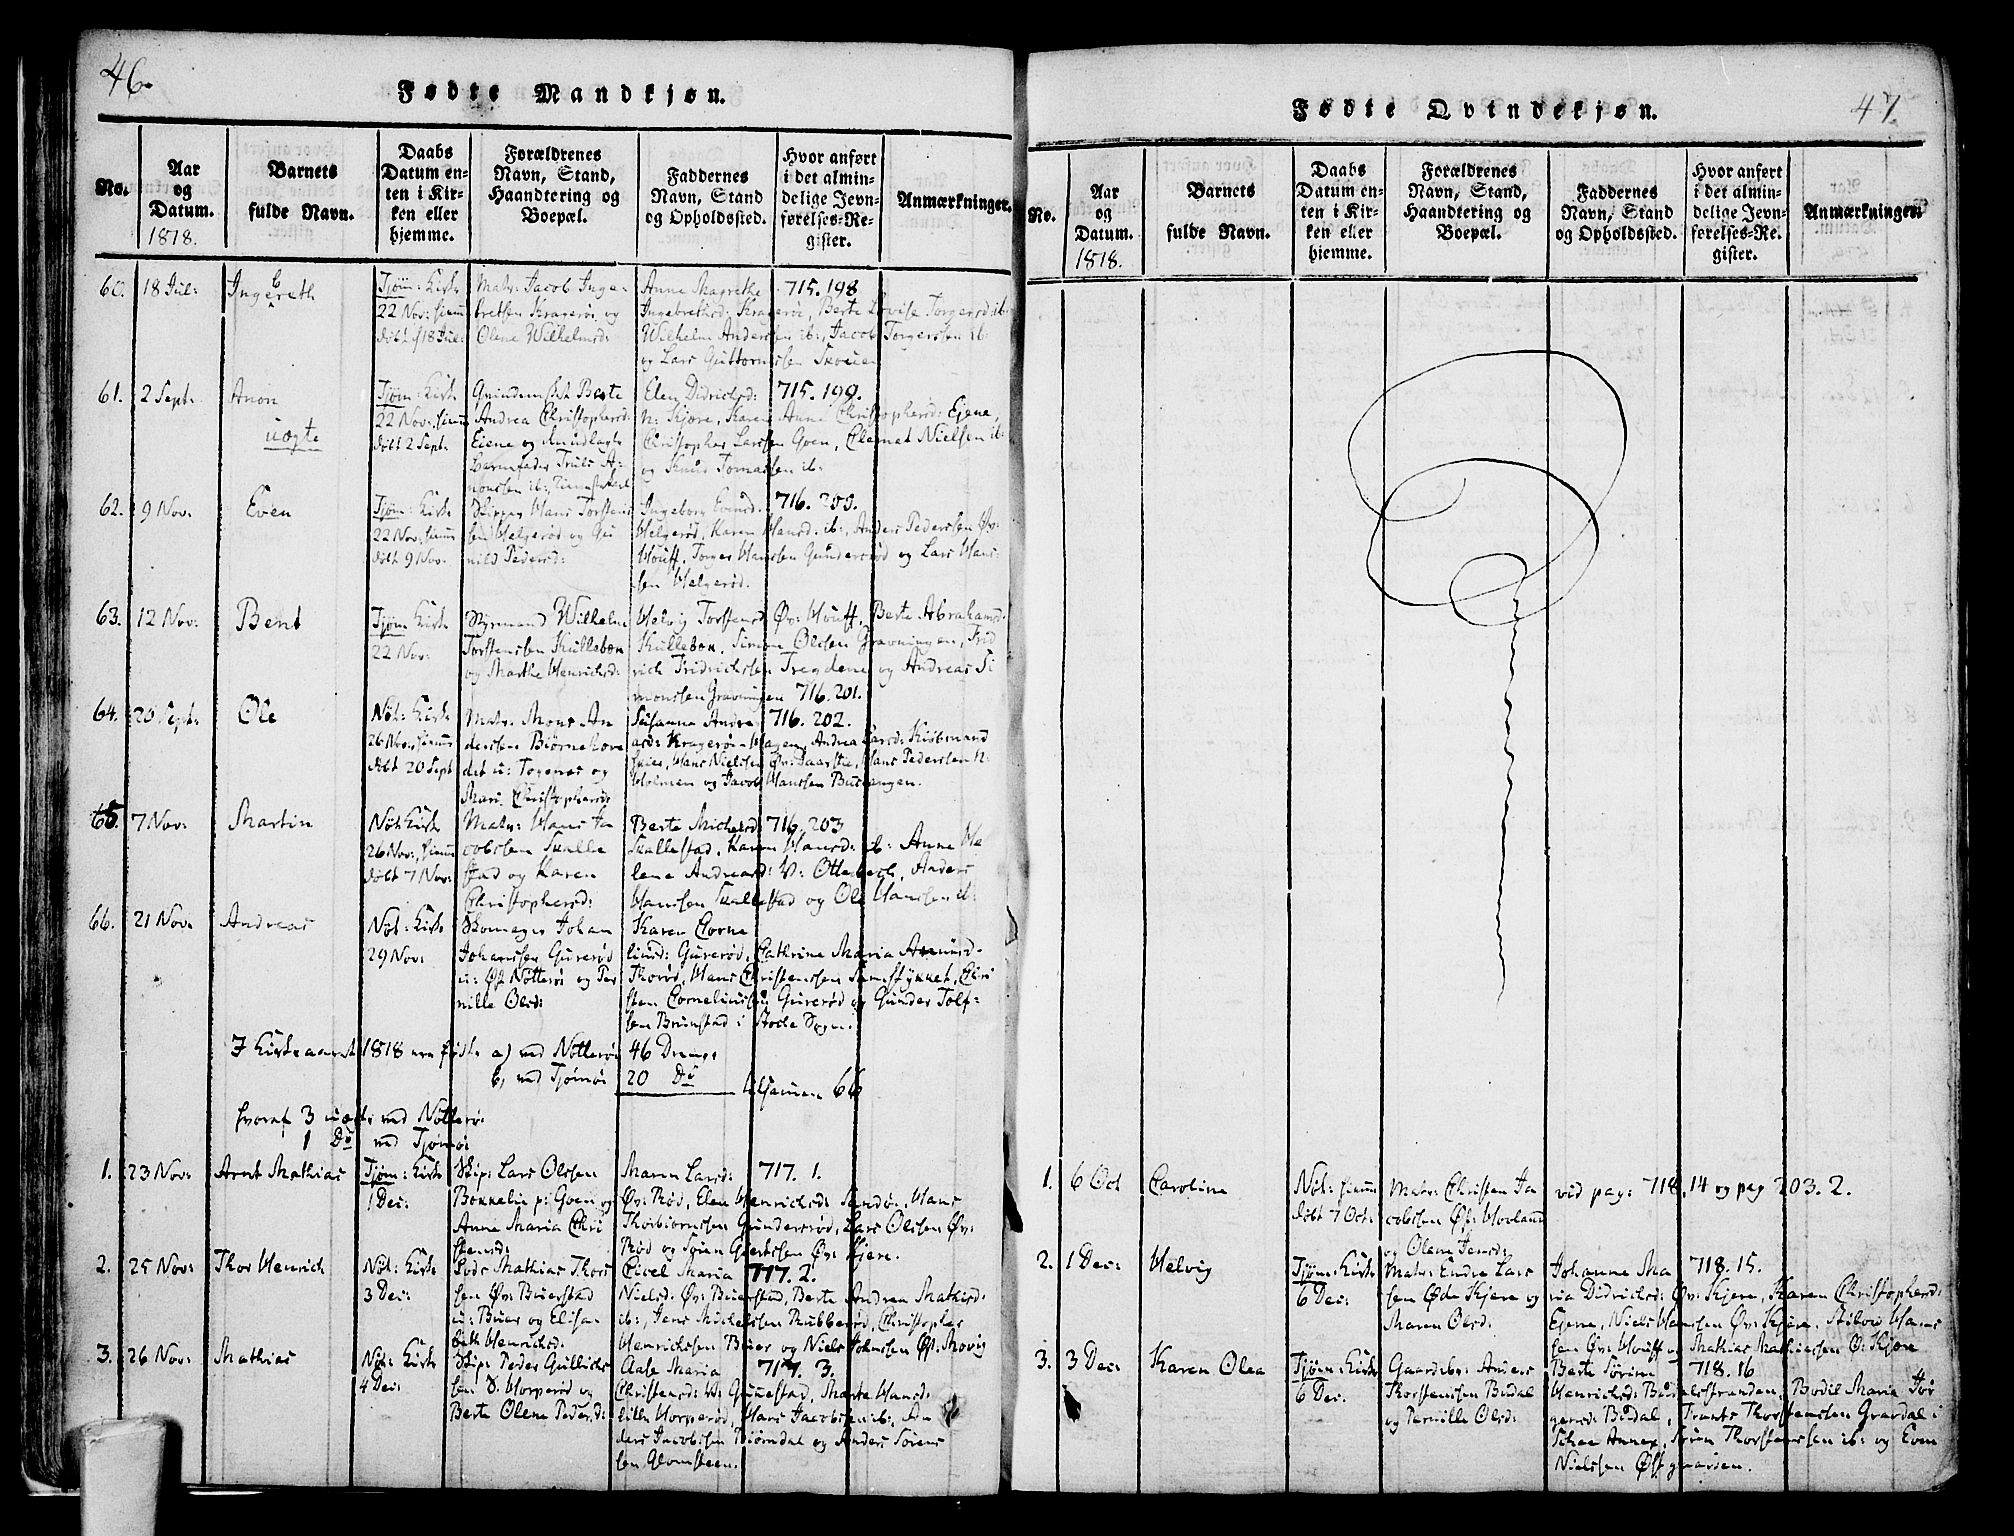 46.
Fødte Mandkjøn.
No.
Aar
og
Datum.
1818.
Barnets
fulde Navn.
Daabs
Datum en-
ten i Kir-
ken eller
hjemme.
Forældrenes
Navn, Stand,
Haandtering og
Boepæl.
Faddernes
Navn, Stand
og Opholdssted.
Hvor anført
i det almin-
delige Jevn-
førelses-Re-
gister.
Anmærkninger.
60. 18 Jul: Ingebreth
Tjøm: Kirke
22 Nov: hjem
døbt 18 Jul:
Matr: Jacob Inge-
bretsen Kragerøe og
Olene Wilhelmsd:
Anne Magrethe 715. 198
Ingebrethsd: Kragerøe, Berte Lovise Torgersd ib:
Wilhelm Andersen ib:, Jacob Torgersen ib:
og Lars Guttormsen Skouen
61. 2 Sept: Anon
uægte
Tjøm: Kirke
22 Nov: hjem
døbt 2 Sept:
Qvindemsk: Berte
Andrea Christophersd:
Eiene og
Barnefader Truls A-
nonsen ib:
Elen Didrichsd: 715. 199.
n: Kjære, Karen Anne Christophersd: Ejene,
Christopher Larsen Goen, Clemet Nielsen ib:
og Knud Tomassen ib:
62. 9 Nov: Even
Tjøm: Kirke
22 Nov: hjem
døbt 9 Nov:
Skipper Hans Torstens
sen Helgerød og Gu
nild Pedersd:
Ingeborg Evensd: 716. 200.
Helgerød, Karen Hansd. ib:, Anders Pedersen Øv:
Houff, Torger Hansen Gundersrød og Lars Han-
sen Helgerød.
63. 12 Nov: Bent
Tjøm: Kirke
22 Nov:
Styrmand Wilhelm
Torstensen Kulleboen
og Marthe Henrichsd:
Helvig Torstensd Øv: Houff, Berte Abrahamsd:
Kulleboen, Simon Olsen Gravningen, Frid
rich Fridrichsen Tregdene og Andreas Si
monsen Gravningen 716. 201.
64. 20 Sept: Ole
Nøt: Kirke
26 Nov, hjem
døbt 20 Sept
Matr: Mons An
dersen Biørnehove
det u: Togenes og
Mari Christophersd:
Susanna Andre 716. 202.
asd: Kragerøe Hagen, Andrea Larsd: Kiøbmand
Hans Nielsen Øv: Haarstie, Hans Pedersen n:
Holmen og Jacob Hansen Buevangen.
65. 7 Nov: Martin
Nøt: Kirke
26 Nov:, hjem
døbt 7 Nov:
Matr: Hans Ja
cobsen Skalle
stad og Karen
Christophersd:
Berte Michelsd: 716. 203
Skallestad, Karen Hansd: ib: Anne He
lene Andreasd: V: Otterbech, Anders
Hansen Skallestad og Ole Hansen ib:
66. 21 Nov: Andreas
Nøt: Kirke
29 Nov:
Skomager Johan
Johansen Gurerød
u: Øst Nøtterøe og Per
nille Olsd:
Karen Corne
liusd: Gurerød, Cathrine Maria Amundsd.
Thorød, Hans Christensen Samstykket, Chri
sten Corneliussen Gurerød og Gunder Tolf-
sen Brunstad i Stocke Sogn.
I Kirkeaaret 1818 ere fødte a) ved Nøtterøe 46 Drenge
b) ved Tjømøe 20 Do
tilsammen 66
hvoraf 3 uægte ved Nøtterøe
1 Do ved Tjømøe
1. 23 Nov: Arnt Mathias
Tjøm: Kirke
1 Dec:
Skip: Lars Olsen
Bonnelia p: Goen og
Anne Maria Chri
stensd:
Maren Larsd: 717. 1.
Øv: Rød, Elen Henrichsd: Sandøe, Hans
Thorbiørnsen Gundersrød, Lars Olsen Øv:
Rød og Søren Giertsen Øv: Kjere.
2. 25 Nov: Thor Henrich
Nøt: Kirke
3 Dec:
Lods Mathias Thors
sen Øv: Buerstad
u: Buer og Elisa-
beth Henrichsd:
Civel Maria 717. 2.
Nielsd. Øv: Buerstad, Berte Andrea Mathisd:
ib:, Jens Michelsen Rubberød, Christopher
Henrichsen Buer og Niels Johnsen Øst: Movig
3. 26 Nov: Mathias
Nøt: Kirke
4 Dec:
Skip: Peder Gullichs
sen S. Horperød og
Berte Olene Peders d:
Aase Maria 717. 3.
Christensd: W: Gunestad, Marte Hansd:
lille Horperød, Hans Jacobsen ib:, An
ders Jacobsen Biørndal og Anders Sørens
sen Glomsteen.
47.
Fødte Qvindekjøn.
No.
Aar
og
Datum.
1818.
Barnets
fulde Navn.
Daabs
Datum en-
ten i Kir-
ken eller
hjemme.
Forældrenes
Navn, Stand,
Haandtering og
Boepæl.
Faddernes
Navn, Stand
og Opholdssted.
Hvor anført
i det almin-
delige Jevn-
førelses-Re-
gister.
Anmærkninger.
1. 6 Oct Caroline
Nøt: hjem
døbt 7 Oct:
Matr: Christen Ja
cobsen Øst: Hovland
og Olene Jensd:
vid pag: 718. 14 og pag 203. 2.
2. 1 Dec: Helvig
Tjøm: Kirke
6 Dec:
Matr: Endre Lars
sen Øde Kjere og
Maren Olsd:
Johanne Ma 718. 15.
ria Didrichsd: Øv: Kjere, Karen Christophersd:
Ejene, Niels Hansen Øv: Kjere, Hans
sen Øv: Houff og Mathias Mathiassen Ø: Kjere
3. 3 Dec: Karen Olea
Tjøm: Kirke
6 Dec:
Gaardebr: Anders
Thorstensen Budal
og Pernille Olsd:
Berte Sørine 718. 16
Henrichsd: Budalsstranden, Bodil Maria Jør
gensd: Budal, Frants Thorstensen Gravdal i
Schee Annex, Søren Thorstensen ib: og Even
Nielsen Østgaarden.